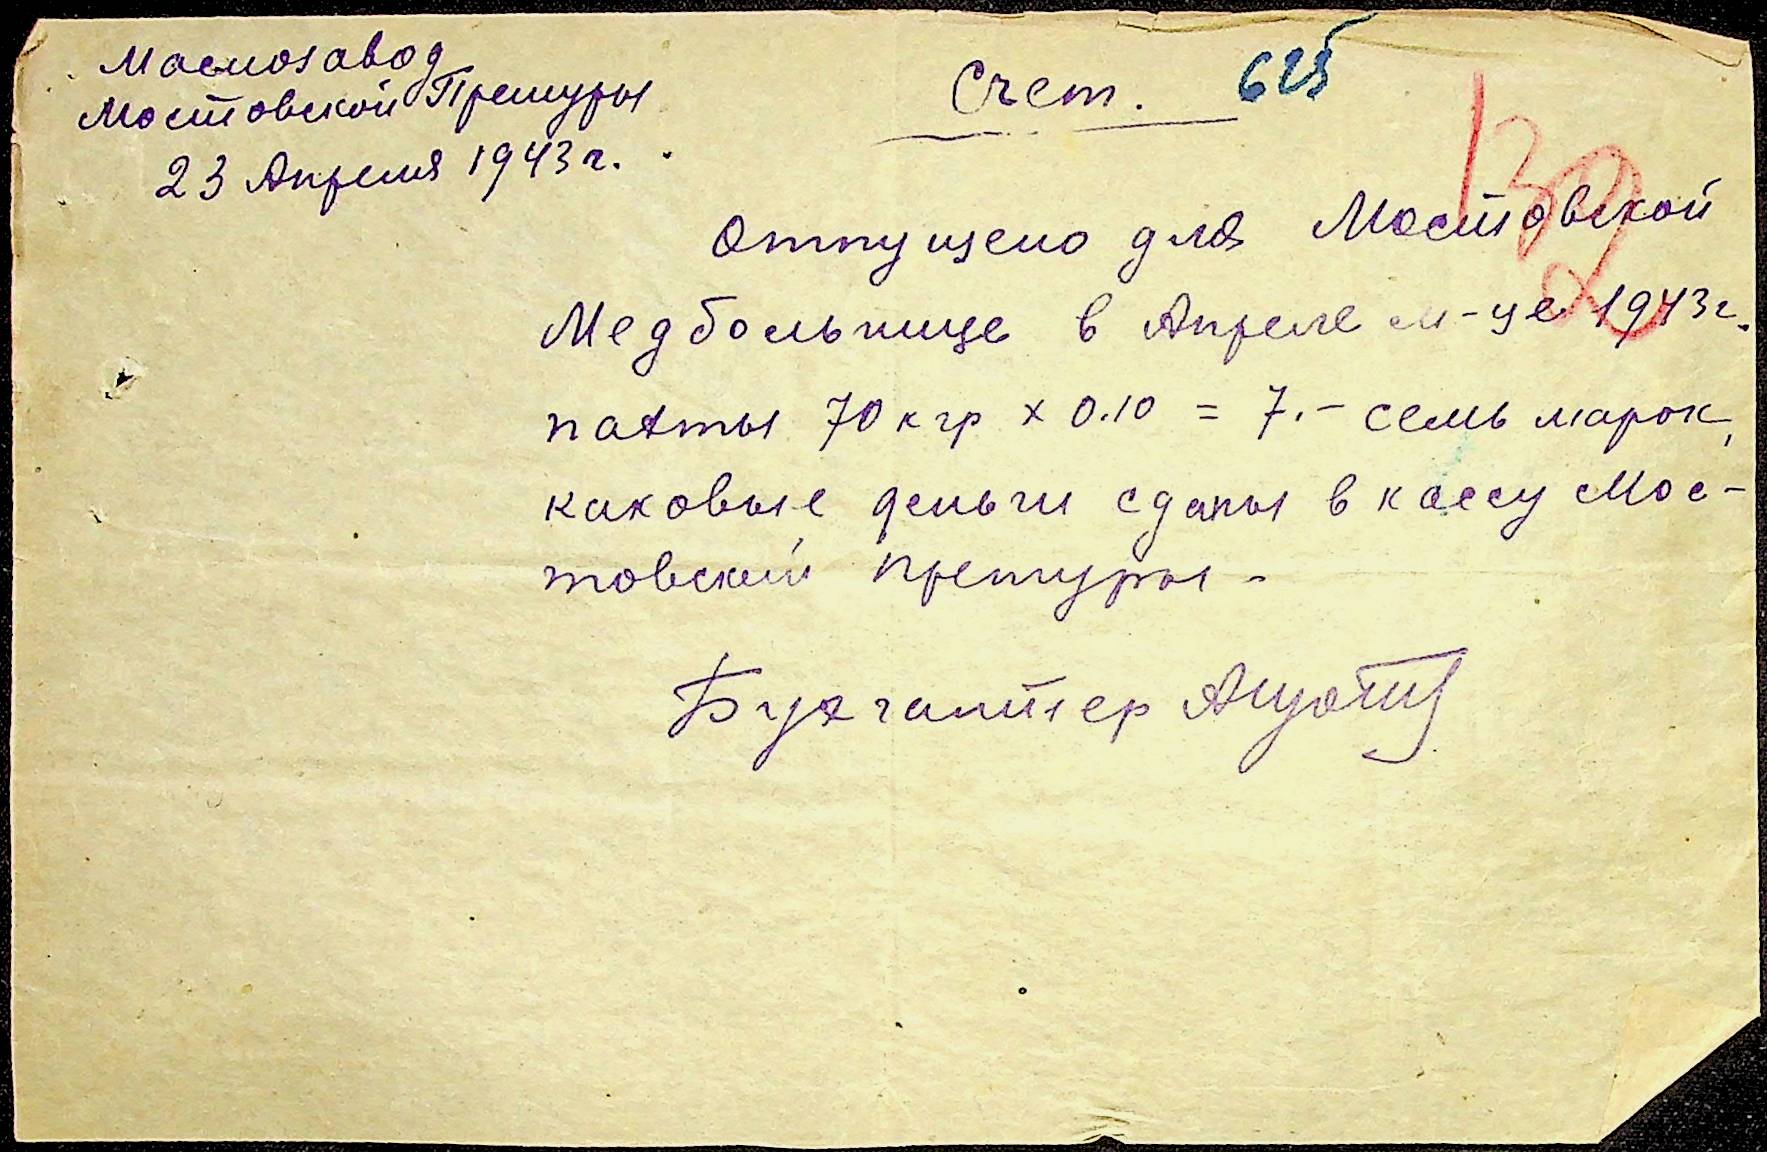 Маслозавод
Мостовской Претуры
23 Апреля 1943 г.
Счет. 625
132
Отпущено для Мостовской
Медбольнице в Апреле м-це 1943 г.
пахты 70 кгр х 0.10 = 7.- семь марок,
каковые деньги сданы в кассу Мос-
товской претуры -
Бухгалтер